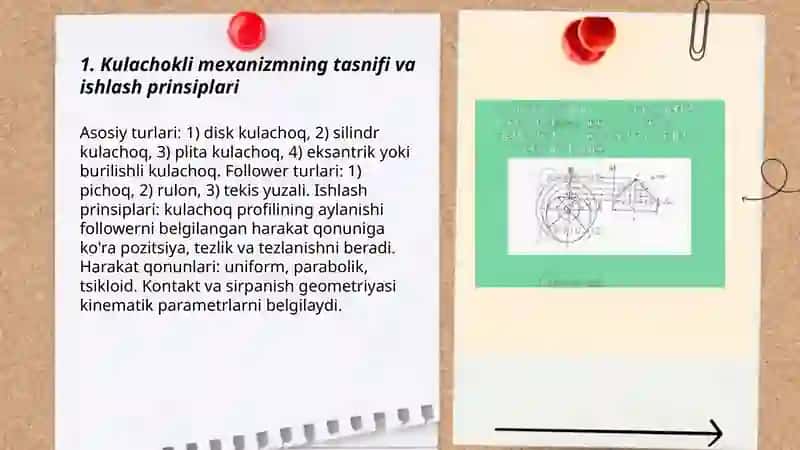 1. Kulachokli mexanizmning tasnifi va
ishlash prinsiplari
Asosiy turlari: 1) disk kulachoq, 2) silindr
kulachoq, 3) plita kulachoq, 4) eksantrik yoki
burilishli kulachoq. Follower turlari: 1)
pichoq, 2) rulon, 3) tekis yuzali. Ishlash
prinsiplari: kulachoq profilining aylanishi
followerni belgilangan harakat qonuniga
ko'ra pozitsiya, tezlik va tezlanishni beradi.
Harakat qonunlari: uniform, parabolik,
tsikloid. Kontakt va sirpanish geometriyasi
kinematik parametrlarni belgilaydi.